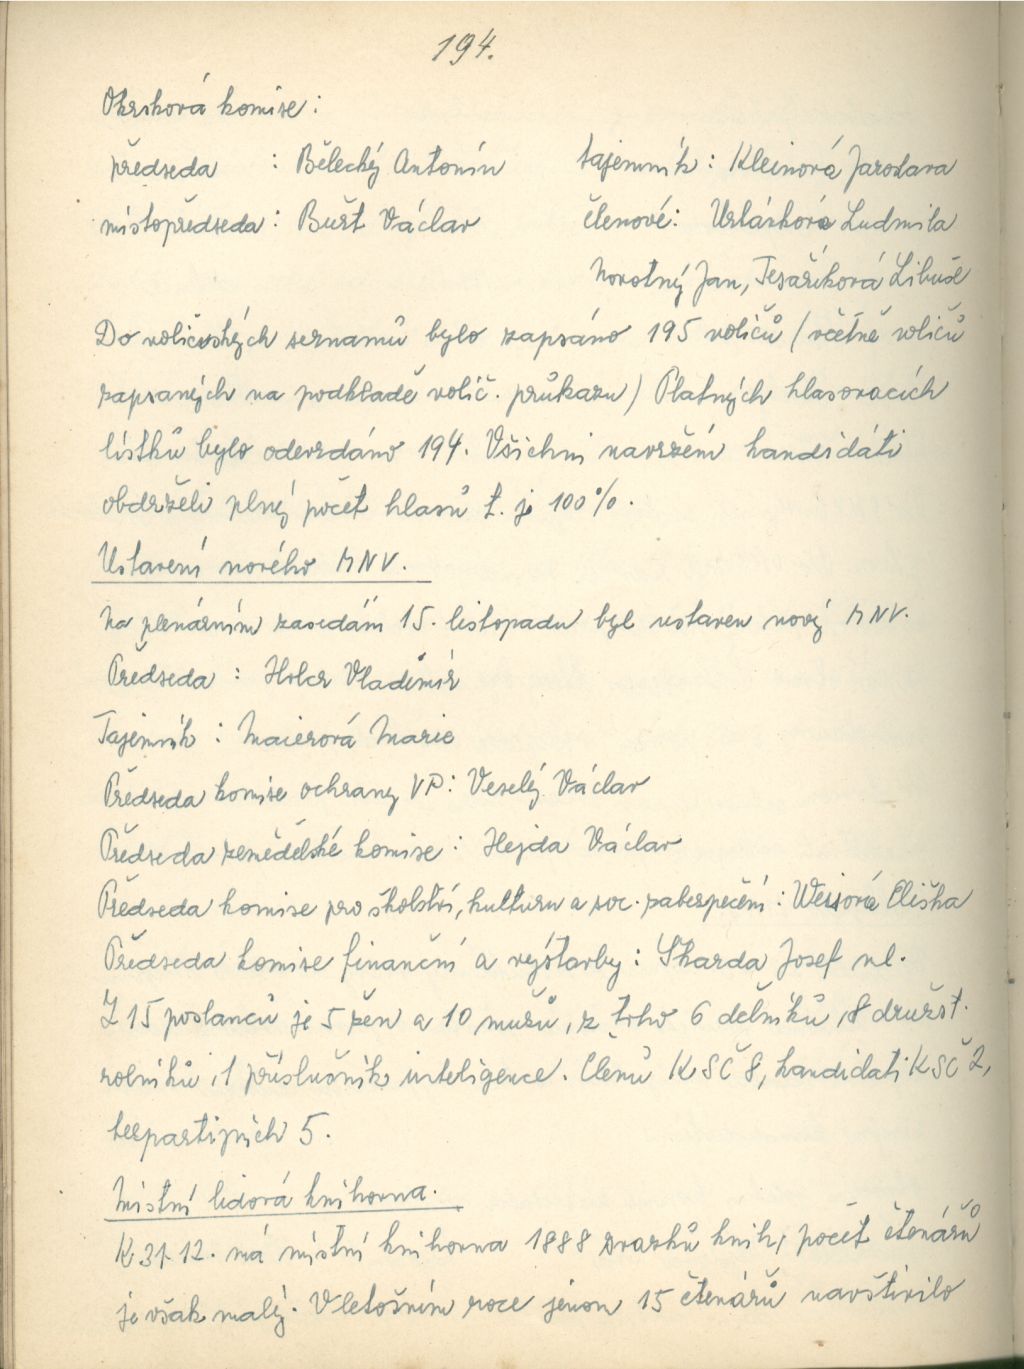 194.
Okrsková komise:
předseda : Bělecký Antonín tajemník: Kleinová Jaroslava
místopředseda: Buřt Václav členové: Ludmila
Novotný Jan, Tesaříková Libuše
Do voličských seznamů bylo zapsáno 195 voličů (včetně voličů
zapsaných na podkladě volič. průkazu) Platných hlasovacích
lístků bylo odevzdáno 194. Všichni navržení kandidáti
obdrželi plný počet hlasů t. j. 100%.
Ustavení nového MNV.
Na plenárním zasedání 15. listopadu byl ustaven nový MNV.
Předseda : Holcr Vladimír
Tajemník : Maierová Marie
Předseda komise ochrany VP: Veselý Václav
Předseda zemědělské komise: Hejda Václav
Předseda komise pro školství, kulturu a soc. zabezpečení: Weisová Eliška
Předseda komise finanční a výstavby: Skarda Josef ml.
Z 15 poslanců je 5 žen a 10 mužů, z toho 6 dělníků, 8 družst.
rolníků, 1 příslušník inteligence. Členů KSČ 8, kandidáti KSČ 2,
bezpartijních 5.
Místní lidová knihovna.
K 31. 12. má místní knihovna 1888 svazků knih, počet čtenářů
je však malý. V letošním roce jenom 15 čtenářů navštívilo